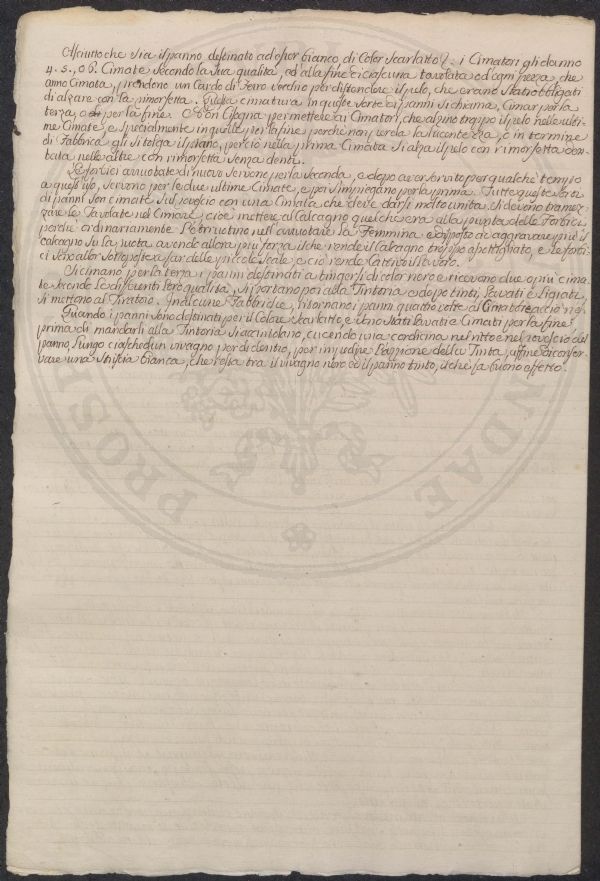 Asciutto che sia il panno destinato ad esser bianco di Color Scarlatto &: i Cimatori gli danno
4. 5., o 6. Cimate secondo la sua qualità, ed alla fine di ciascuna tavolata ed ogni pezza, che
anno Cimata, prendono un Cardo di ferro vecchio per distendere il pelo, che erano stati obbligati
di alzare con la rimorsetta. Questa cimatura in queste sorte di panni si chiama, Cimar per la
terza, o per la fine. Non bisogna permettere ai Cimatori, che alzino troppo il pelo nelle ulti-
me Cimate, e specialmente in quelle per la fine perchè non perda la lucentezza, o in termine
di Fabbrica gli si tolga il piano, perciò nella prima Cimata si alza il pelo con rimorsetta den-
tata nelle altre con rimorsetta senza denti.
Le forbici arruotate di nuovo servono per la seconda, e dopo aver servito per qualche tempo
a quest'uso, servono per le due ultime Cimate, e poi s'impiegano per la prima. Tutte queste sorti
di panni son cimate sul rovescio con una Cimata che deve darsi molto unita. Si devono tramez-
zare le Tavolate nel Cimare, cioè mettere al Calcagno quel che era alla punta delle Forbici
perchè ordinariamente l'Arruotino nell'arruotare la Femmina è disposto di aggravare più il
calcagno su la ruota avendo allora più forza il che rende il Calcagno troppo assottigliato, e le forbi-
ci sono allor sottoposte a far delle piccole scale e ciò rende cattivo il lavoro.
Si cimano per la terza i panni destinati a tingersi di color nero e ricevono due o più cima-
te secondo le differenti loro qualità, si portano poi alla Tintoria e dopo tinti, Lavati e Ligiati,
si mettono al Tiratoio. In alcune Fabbriche, ritornano i panni quattro volte al Cimatore
Quando i panni sono destinati per il Colore Scarlatto, e sono stati Lavati e Cimati per la fine
prima di mandarli alla Tintoria si accintolano, cucendo una cordicina nel ritto e nel rovescio del
panno, Lungo ciaschedun vivagno per di dentro, per impedire l'azzione della Tinta, affine di conser-
vare una striscia bianca, che resta tra il vivagno nero ed il panno tinto, il che fa buono effetto.
PROS
NDAE